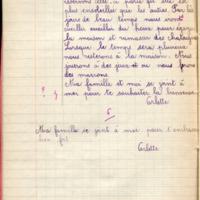 plus ensoleillée que les autres. Par les
jours de beau temps nous irons
cueillir du houx pour
la maison et ramasser des châtaignes
Lorsque le temps sera pluvieux
nous resterons à la maison. Nous
jouerons à des jeux et nous ferons
des marrons.
? Ma famille et moi se joint à
moi pour te souhaiter la bienvenue
Arlette
6
Ma famille se joint à moi pour t'embrasser
bien fort
Arlette